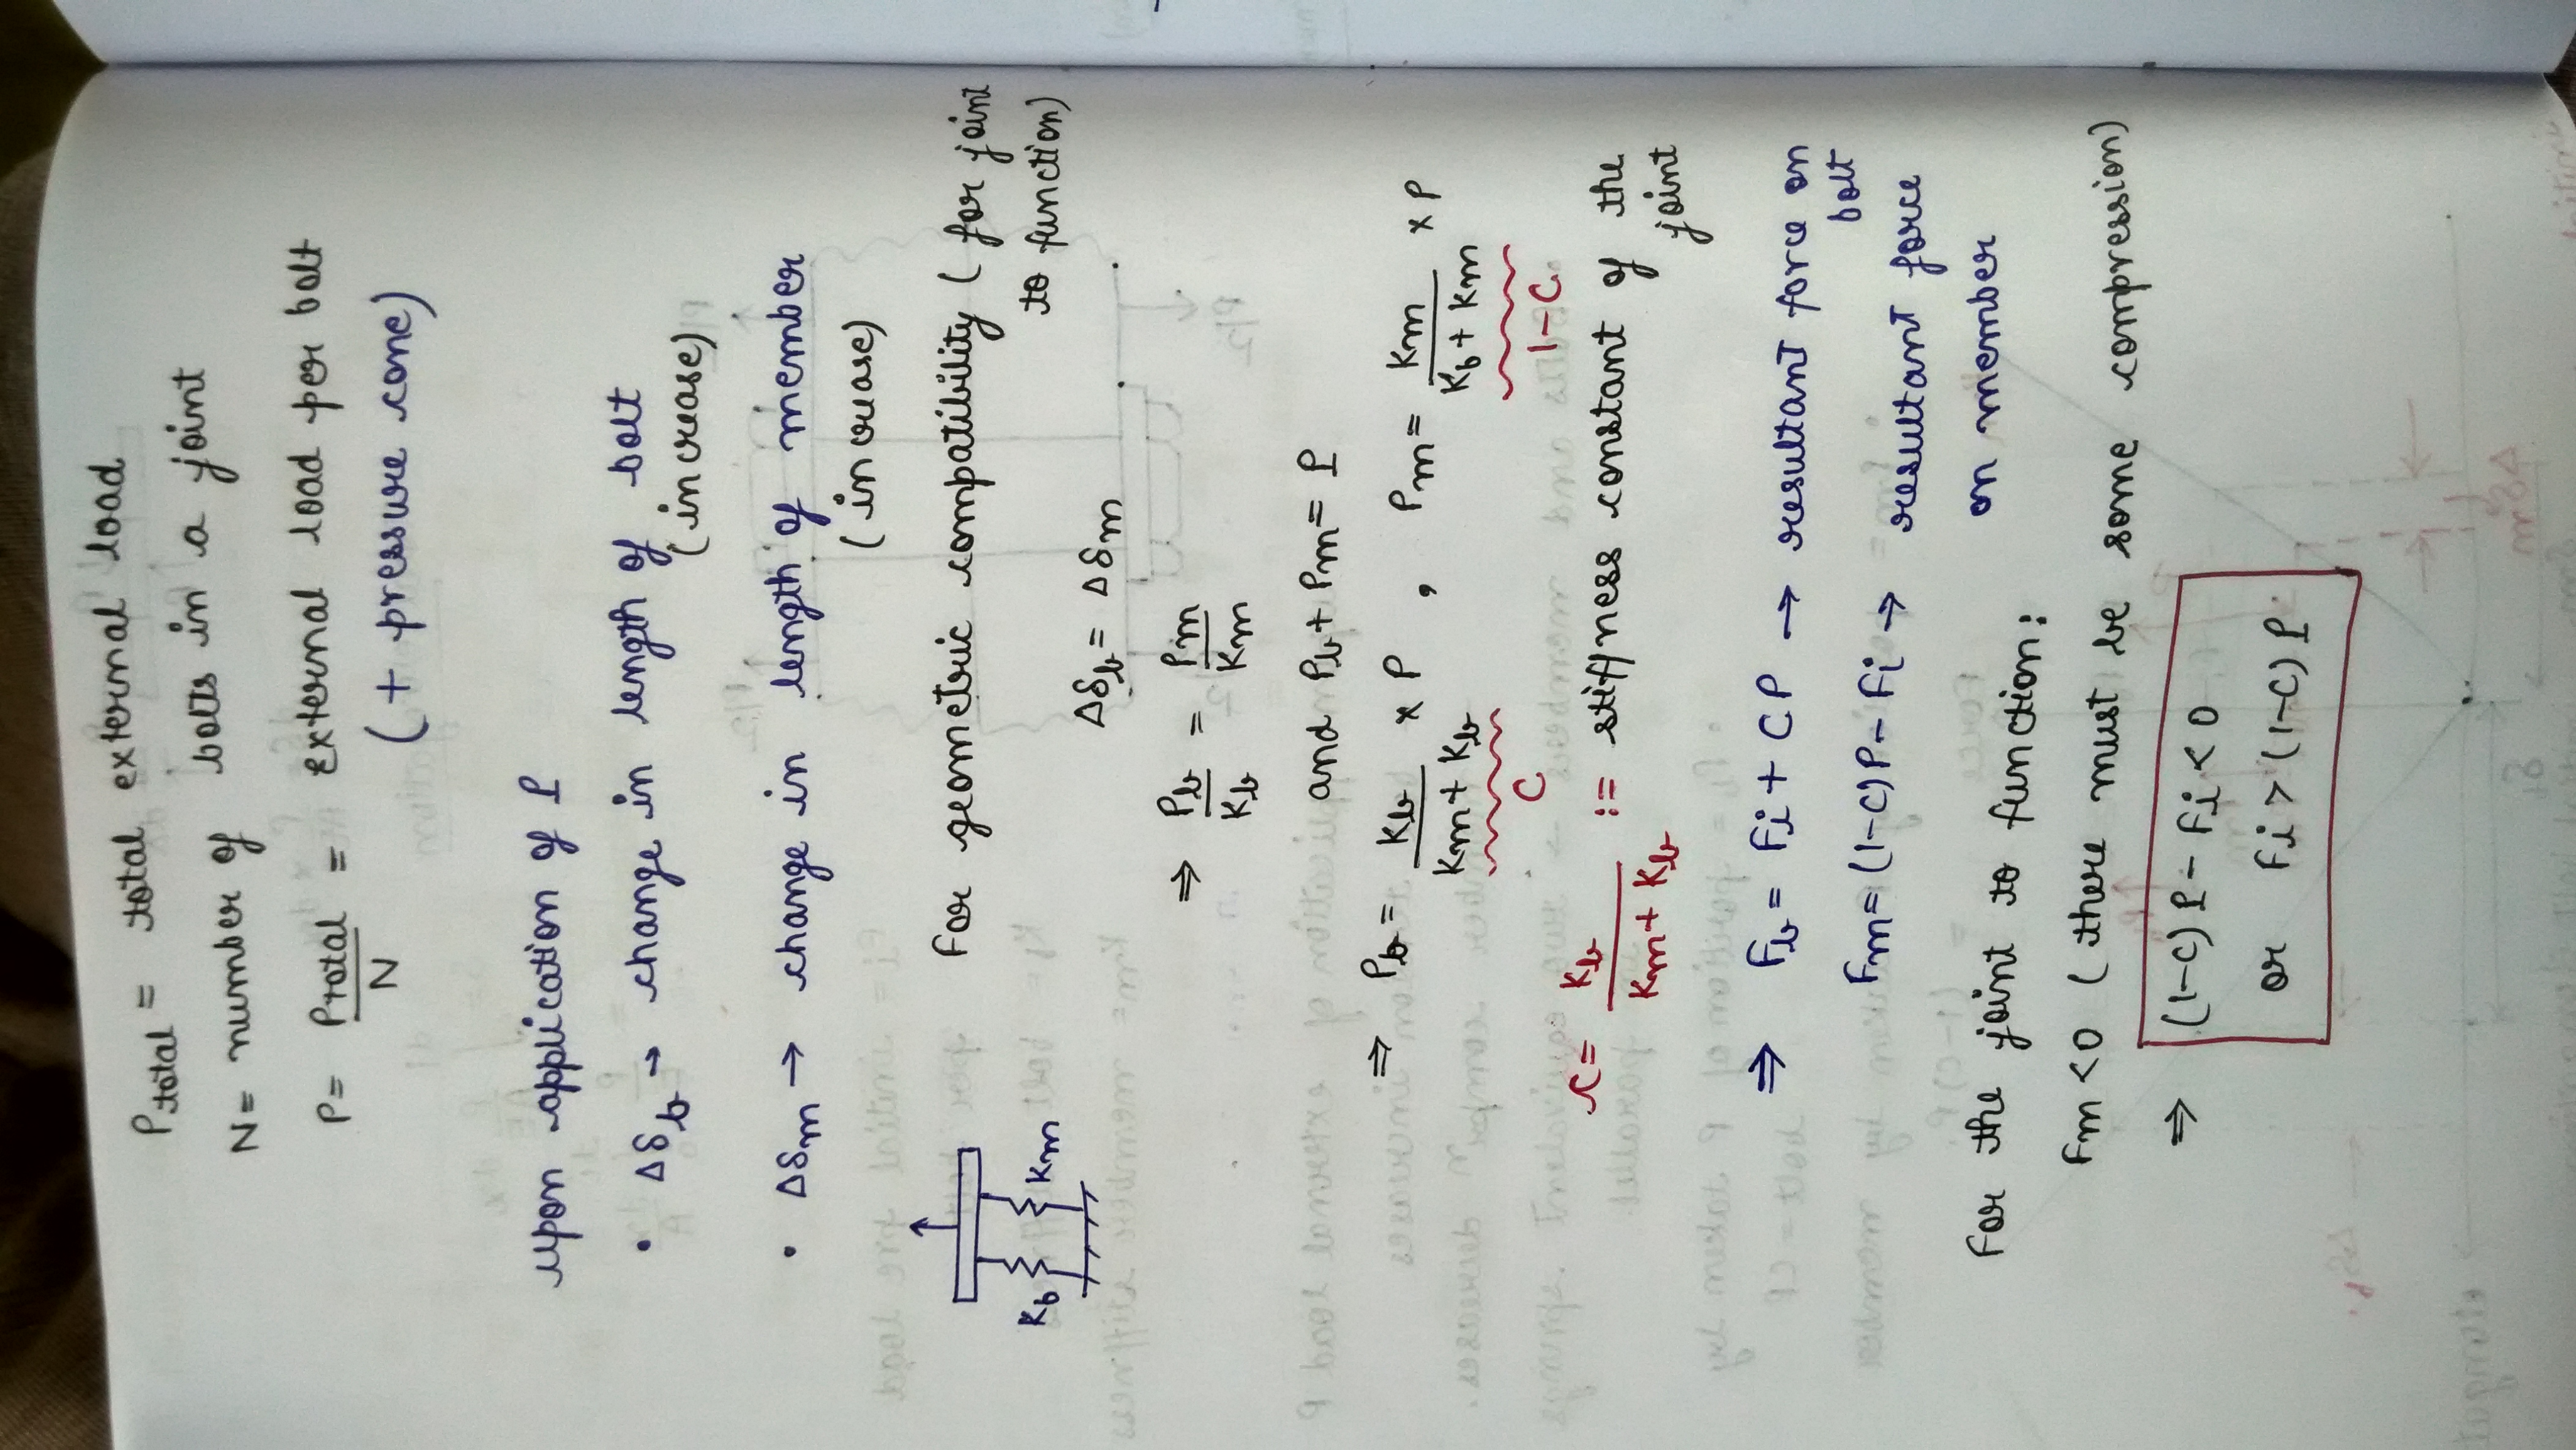 P total = total external load
N = number of bolts in a joint
P = Ptotal / N = External load per bolt
(+ pressure cone)
upon application of P
• Δδb → change in length of bolt
(increase)
• Δδm → change in length of member
(increase)
For geometric compatibility (for joint
to function)
Kb Km
Δδb = Δδm
⇒ Pb / Kb = Pm / Km
and Pb + Pm = P
⇒ Pb = Kb / (Km + Kb) × P , Pm = Km / (Kb + Km) × P
C 1-C
C = Kb / (Km + Kb) := stiffness constant of the
joint
⇒ Fb = Fi + CP → resultant force on
bolt
Fm = (1-C)P - Fi → resultant force
on member
For the joint to function:
Fm < 0 (there must be some compression)
⇒ (1-C) P - Fi < 0
or Fi > (1-C) P